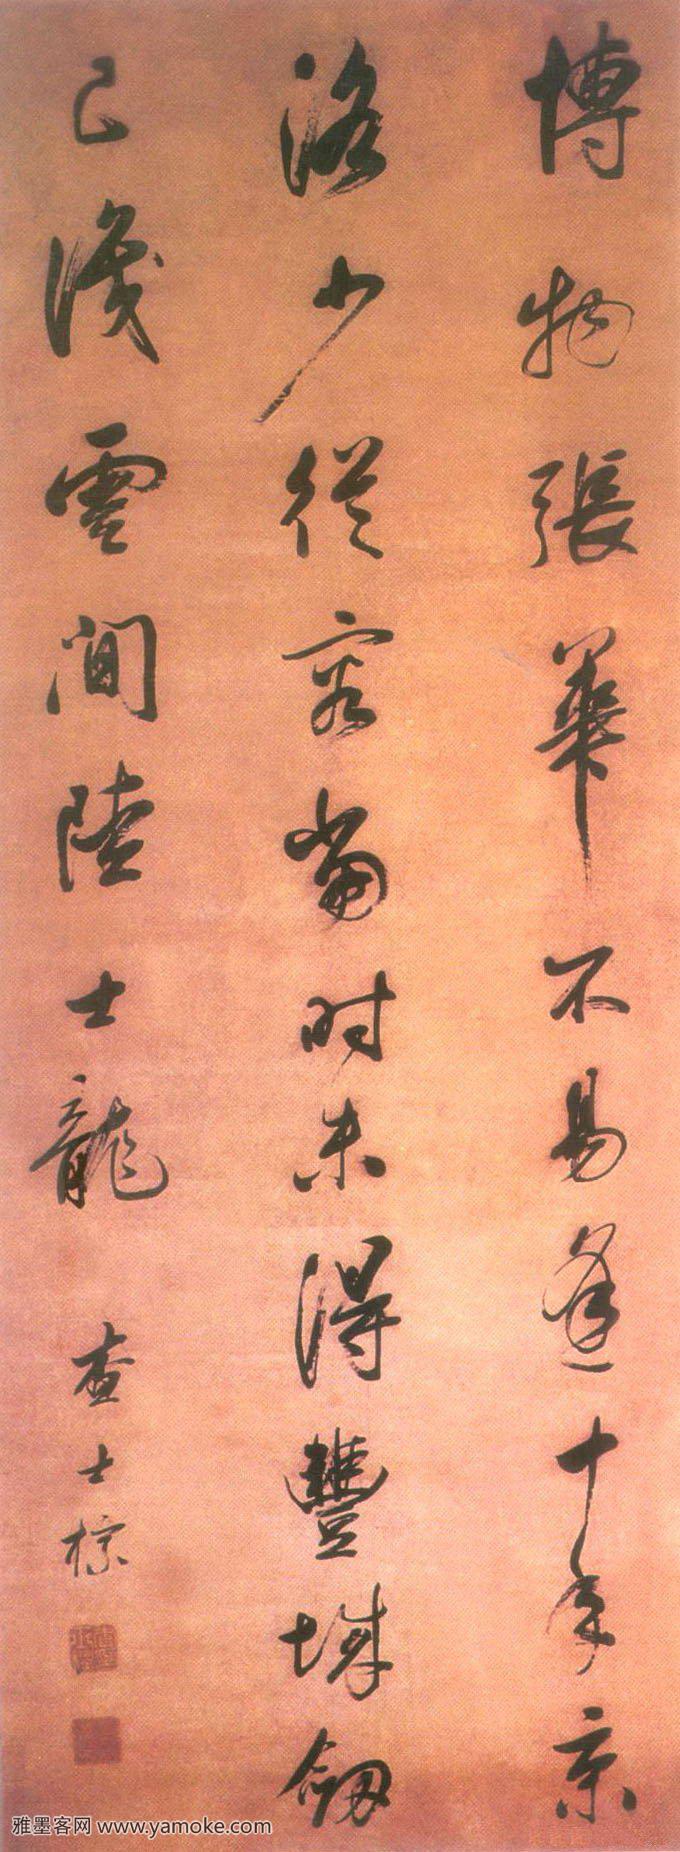 博物張華不易逢十年京
洛少從容當时未得豐城劔
已識雲間陸士龍
查士標
雅墨客网 www.yamoke.com